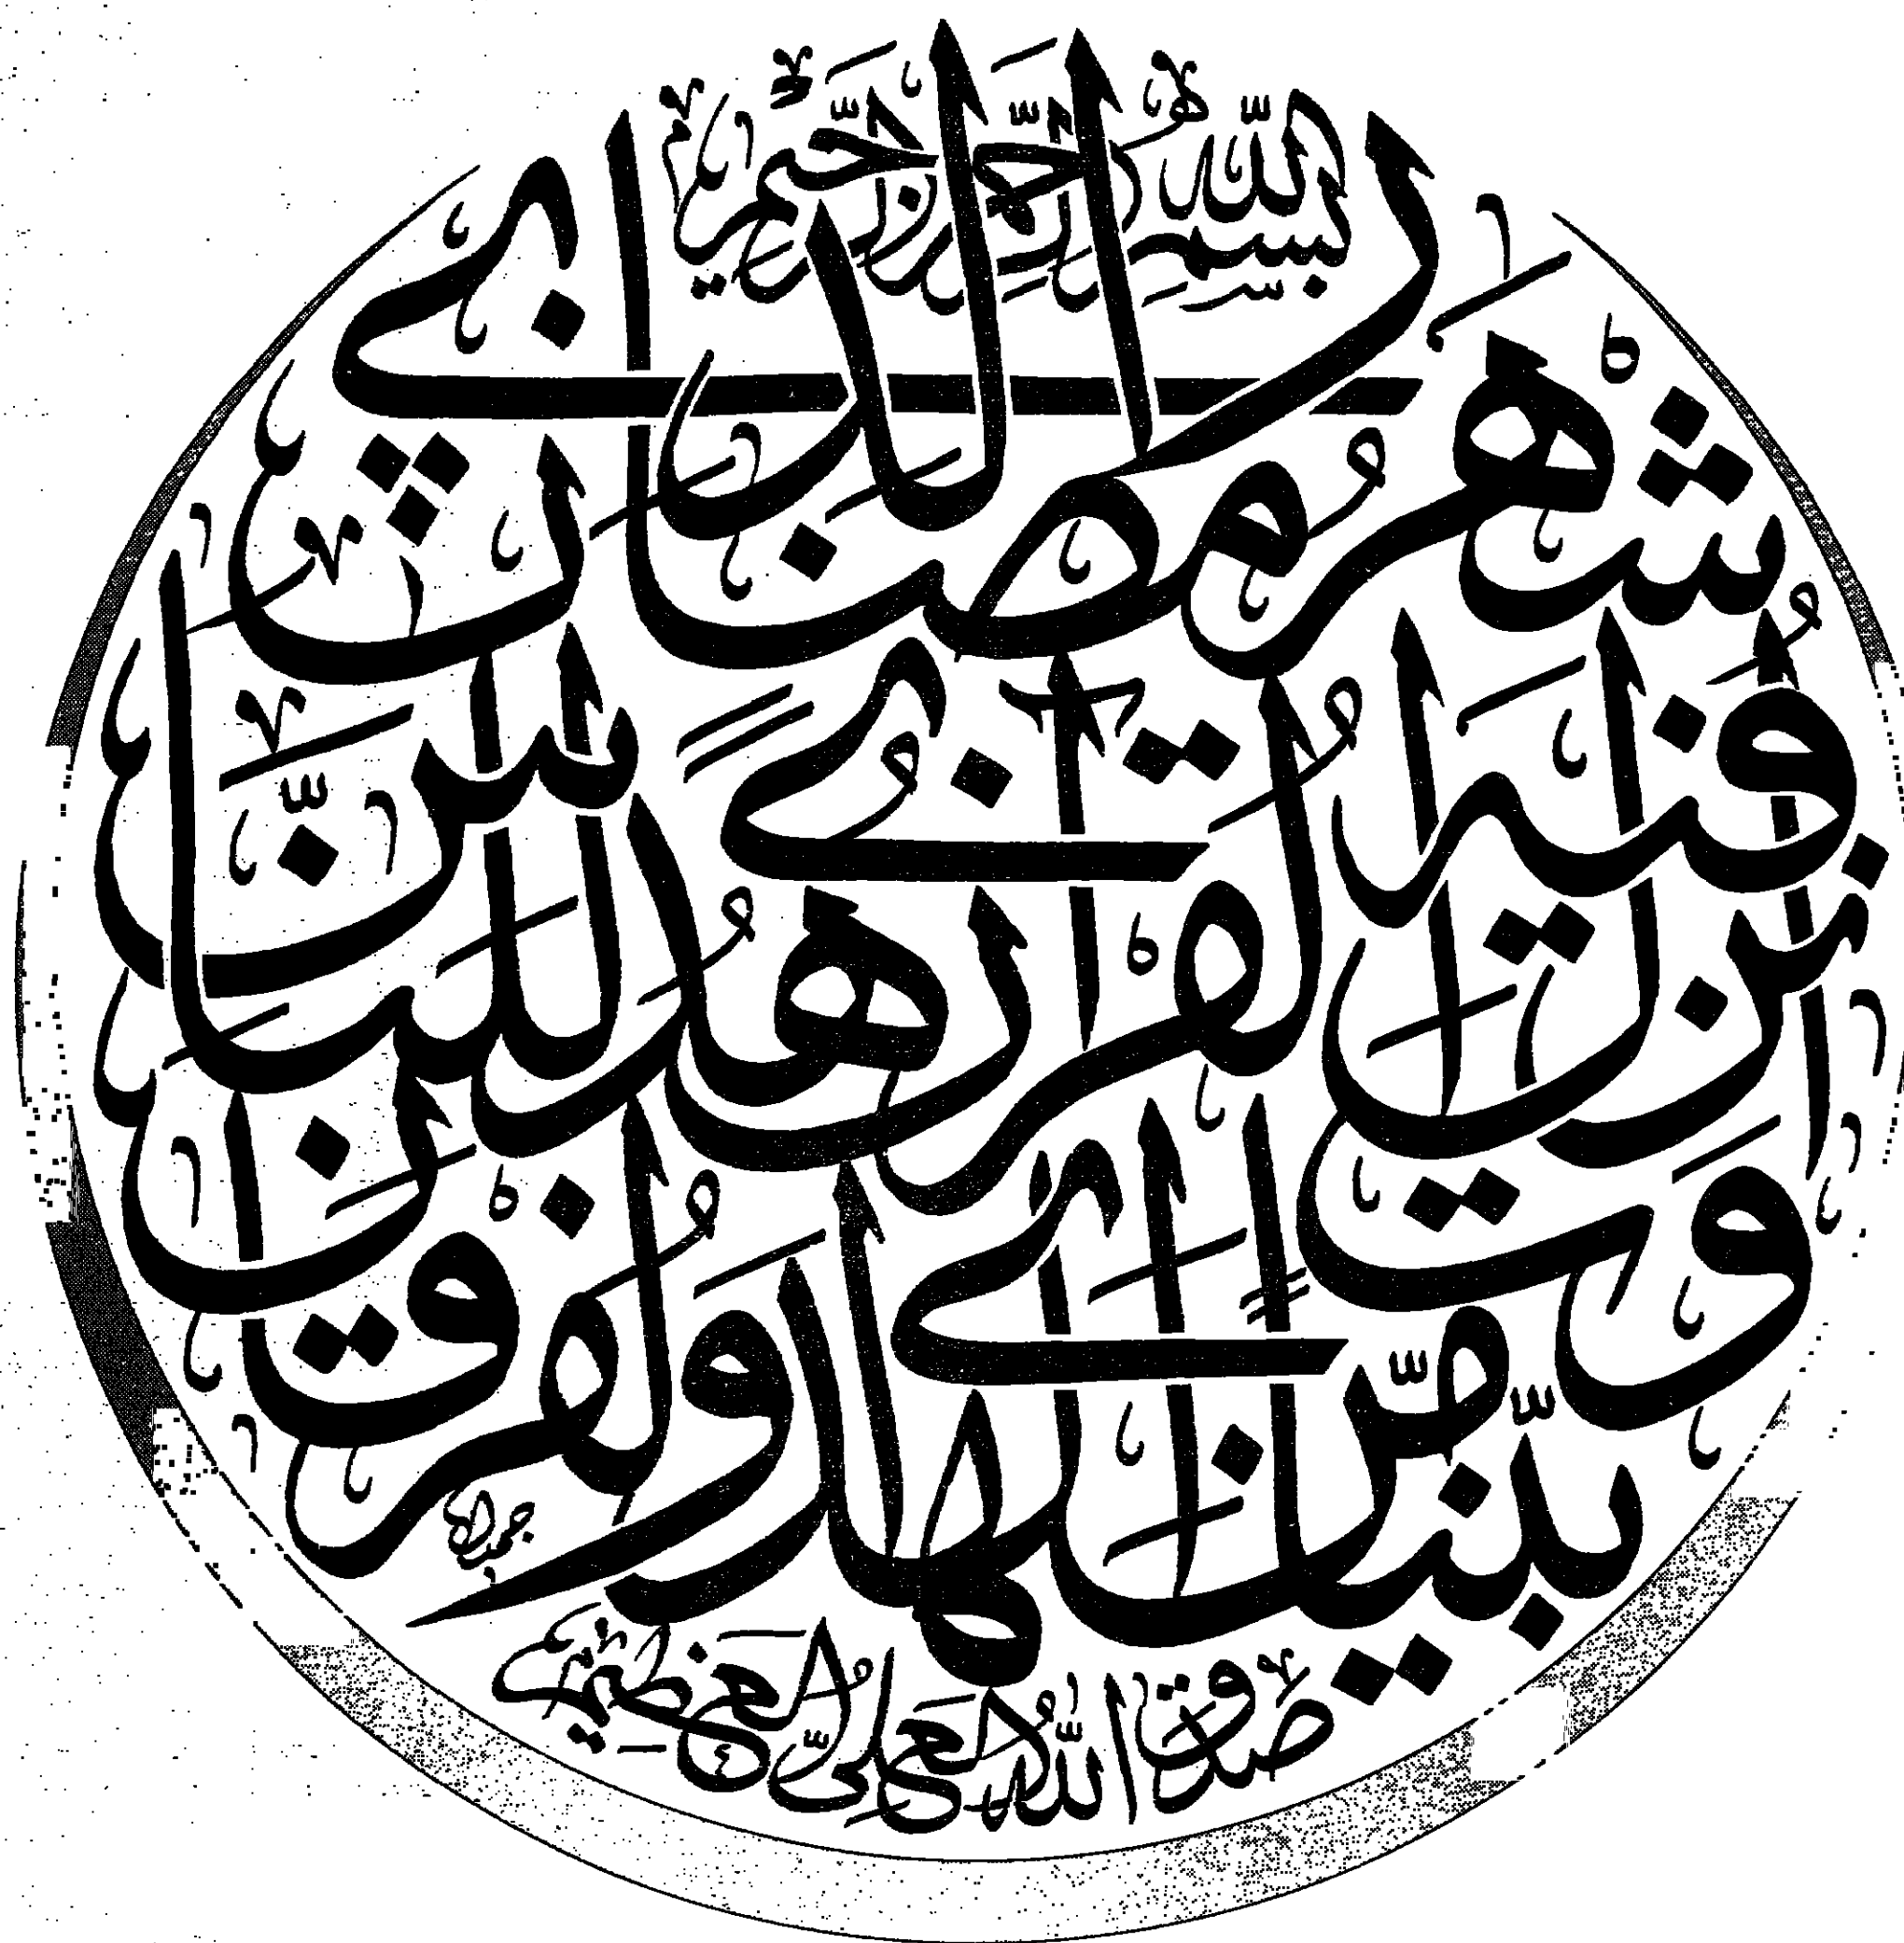 بسم الله الرحمن الرحيم
شهر رمضان الذي أنزل
فيه القرآن هدى للناس
وبينات من الهدى والفرقان
صدق الله تعالى العظيم